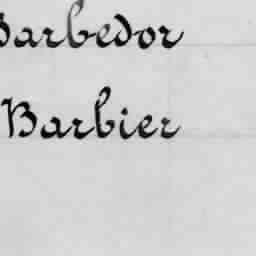 Barbedor
Barbier